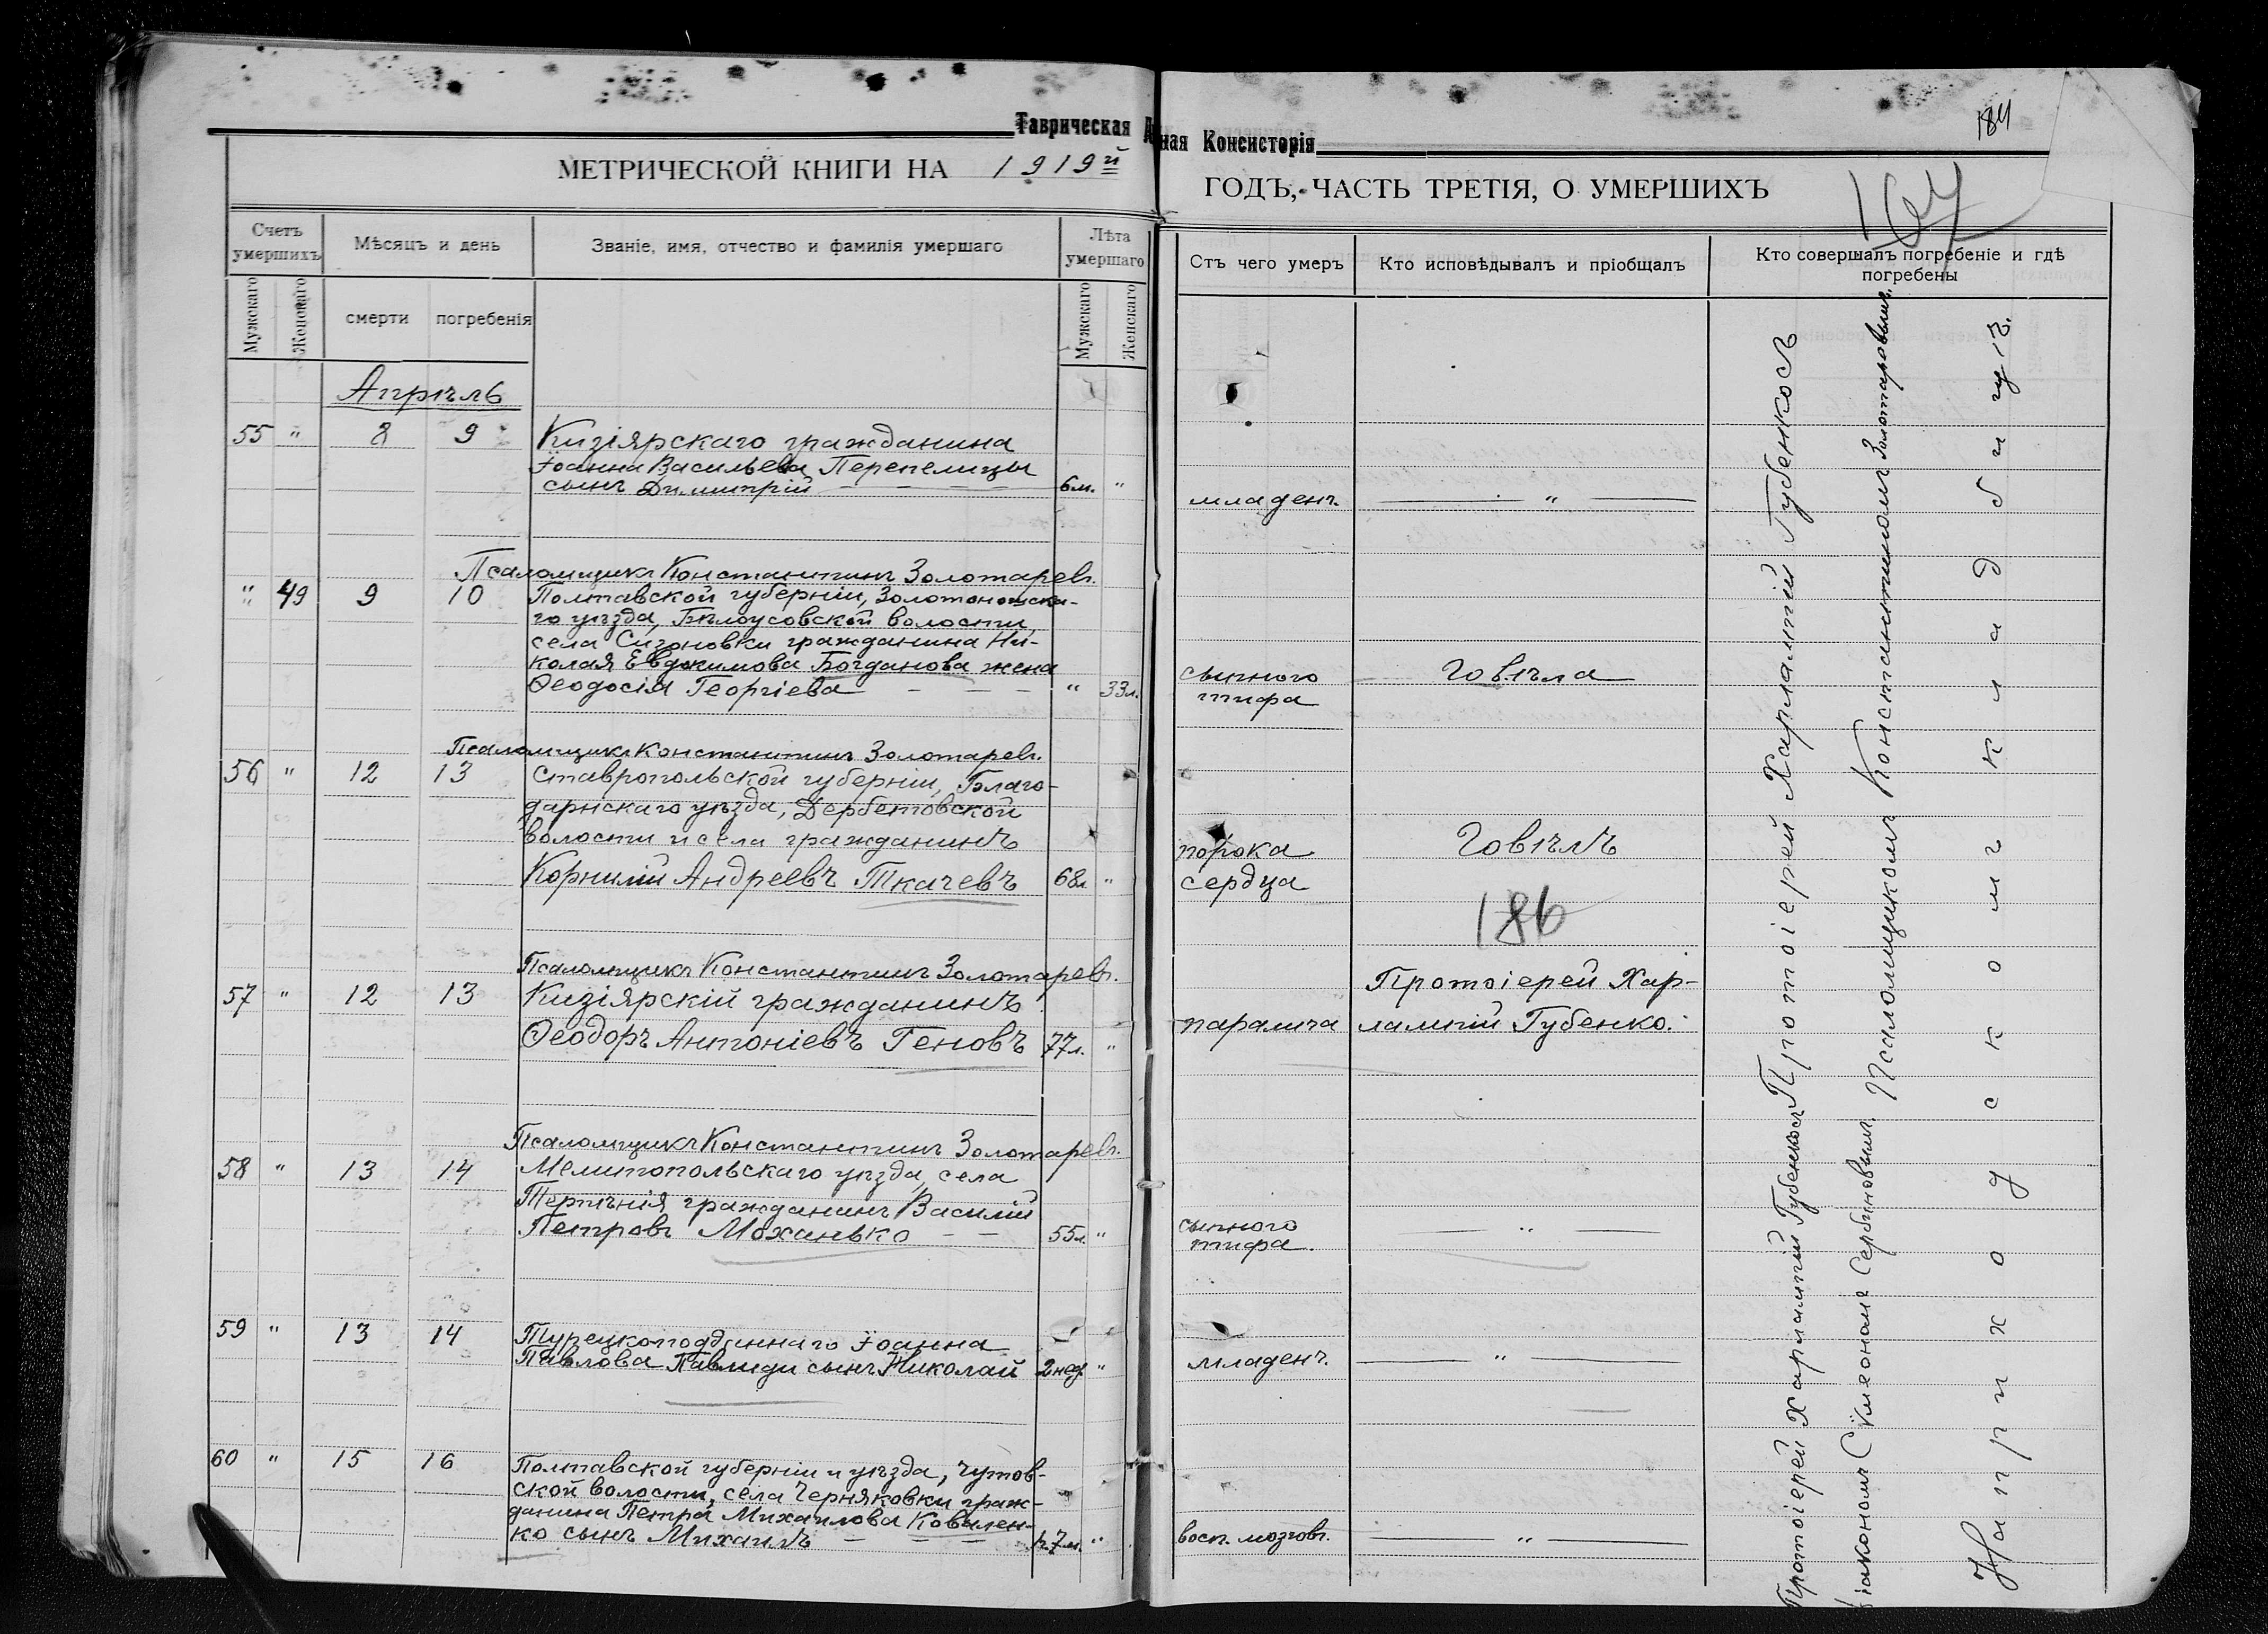 Таврическая
ная Консисторія
184
МЕТРИЧЕСКОЙ КНИГИ НА 1919й
ГОДЪ, ЧАСТЬ ТРЕТІЯ, О УМЕРШИХЪ
Счетъ умершихъ
Мѣсяцъ и день
Званіе, имя, отчество и фамилія умершаго
Лѣта умершаго
Стъ чего умеръ
Кто исповѣдывалъ и пріобщалъ
Кто совершалъ погребеніе и гдѣ погребены
Мужскаго
Женскаго
смерти
погребенія
Мужскаго
Женскаго
Апрѣль
55 " 8 9 Кизіярскаго гражданина
Іоанна Васильева Перепелицы
сынъ Димитрій — — — 6м. "
младенч. — " —
Псаломщикъ Константинъ Золотаревъ.
" 49 9 10 Полтавской губерніи, Золотоношска-
го уѣзда, Бѣлоусовской волости,
села Сизоновки гражданина Ни-
колая Евдокимова Богданова жена
Ѳеодосія Георгіева — — — " 33л.
сыпного тифа
Говѣла
Псаломщикъ Константинъ Золотаревъ.
56 " 12 13 Ставропольской губерніи, Благо-
дарнскаго уѣзда, Дербетовской
волости и села гражданинъ
Корнилій Андреевъ Ткачевъ 68л "
порока сердца
Говѣлъ
186
Псаломщикъ Константинъ Золотаревъ.
57 " 12 13 Кизіярскій гражданинъ
Ѳеодоръ Антоніевъ Геновъ 77л. "
паралича
Протоіерей Хар-
лампій Губенко.
Псаломщикъ Константинъ Золотаревъ.
58 " 13 14 Мелитопольскаго уѣзда, села
Терпѣнія гражданинъ Василій
Петровъ Моханько — — 55л. "
сыпного тифа. — " —
59 " 13 14 Турецкоподданнаго Іоанна
Павлова Павлиди сынъ Николай 2нед. "
младенч. — " —
60 " 15 16 Полтавской губерніи и уѣзда, Чутов-
ской волости, села Черняковки граж-
данина Петра Михаилова Ковален-
ко сынъ Михаилъ — — — 7м. "
восп. мозговъ. — " —
Протоіерей Харлампій Губенко съ
Псаломщикомъ Константиномъ Золотаревымъ.
Протоіерей Харлампій Губенко съ
діакономъ Сѵмеономъ Сербиновымъ
На приходскомъ кладбищѣ.